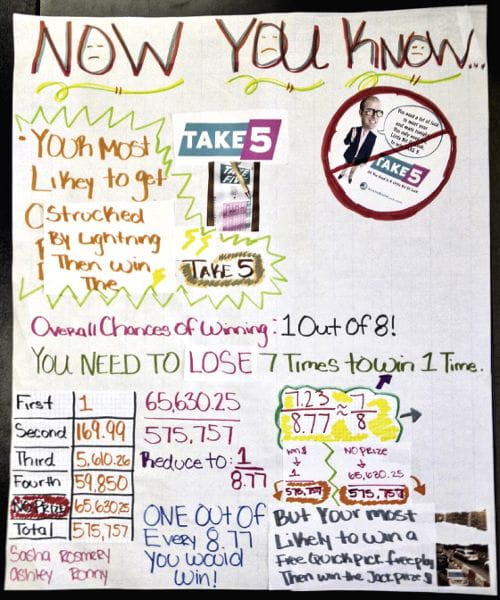 NOW YOU KNOW...
• YouR Most
Likey to get
Strucked
By Lightning
Then win
The
TAKE 5
TAKE 5
You need a lot of luck
TAKE5
All You Need Is A Little Bit Of Luck
Overall Chances of Winning: 1 Out of 8!
YOU NEED TO LOSE 7 Times to win 1 Time.
First 1
Second 169.99
Third 5,610.26
Fourth 59,850
No Prize 65,630.25
Total 575,757
65,630.25
575,757
Reduce to: 1
8.77
7.23 ≈ 7
8.77 8
NO PRIZE
1 65,630.25
575,757 575,757
ONE OUT OF
Every 8.77
You would
Win!
But Your most
Likely to win a
Free Quick Pick free play
Then win the Jackprize $
Sasha Rosmery
Ashley Ronny